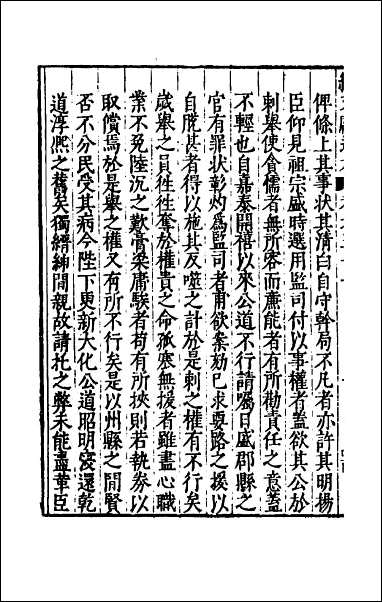 俾條上其事狀其清白自守幹局不凡者亦許其明揚
臣仰見祖宗盛時選用監司付以事權者蓋欲其公於
刺舉使貪懦者無所容而亷能者有所勸責任之意蓋
不輕也自嘉泰開禧以來公道不行請囑日盛郡縣之
官有罪狀彰灼爲監司者甫欲案劾已求要路之援以
自脫甚者得以施其反噬之計於是刺之權有不行矣
歲舉之員徃徃奪於權貴之命孤寒無援者雖盡心職
業不免陸沉之歎膏梁庸騃者苟有所挾則若執券以
取償焉於是舉之權又有所不行矣是以州縣之閒賢
否不分民受其病今陛下更新大化公道昭明寖還乾
道淳熙之舊矣獨縉紳閒親故請托之弊未能盡革臣